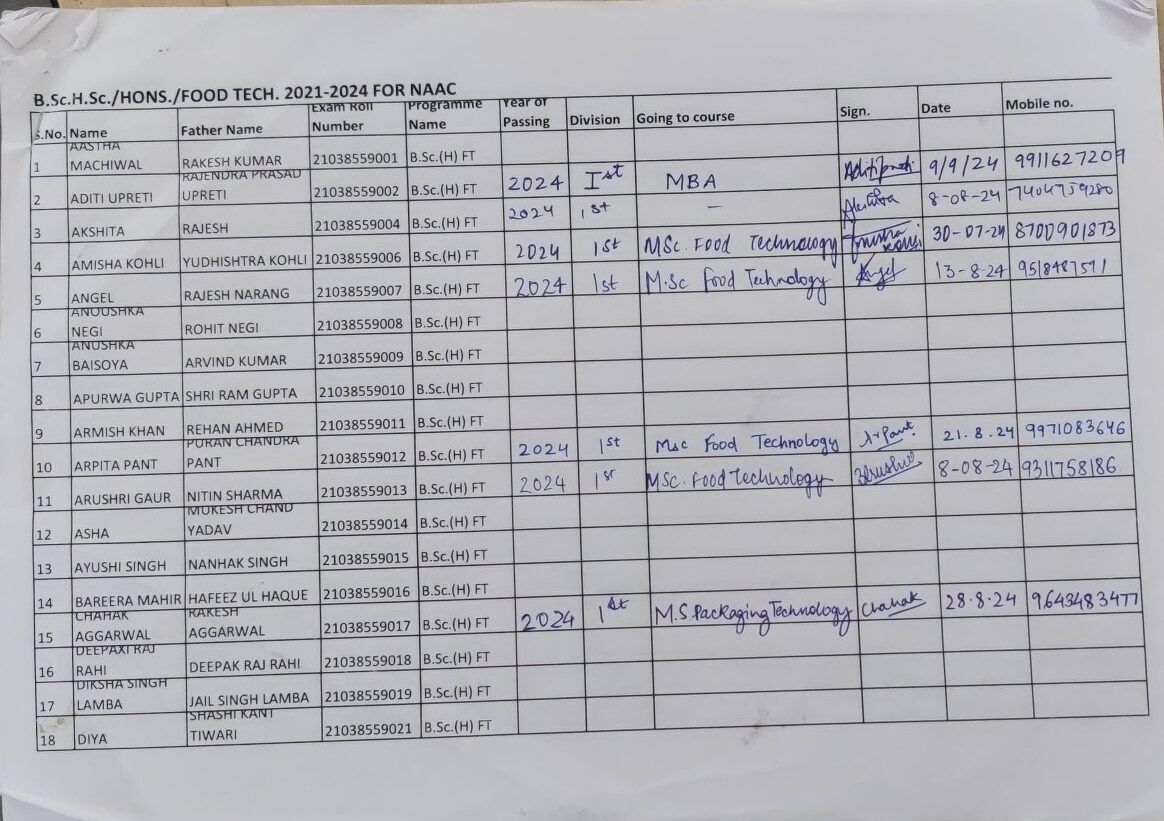 B.Sc.H.Sc./HONS./FOOD TECH. 2021-2024 FOR NAAC
s.No. Name Father Name Exam Roll Number Programme Name Year of Passing Division Going to course Sign. Date Mobile no.
1 AASTHA MACHIWAL RAKESH KUMAR 21038559001 B.Sc.(H) FT
2 ADITI UPRETI RAJENDRA PRASAD UPRETI 21038559002 B.Sc.(H) FT 2024 Ist MBA 9/9/24 9911627209
3 AKSHITA RAJESH 21038559004 B.Sc.(H) FT 2024 1st – Akshita 8-08-24 7404759280
4 AMISHA KOHLI YUDHISHTRA KOHLI 21038559006 B.Sc.(H) FT 2024 1st MSc. Food Technology 30-07-24 8700901873
5 ANGEL RAJESH NARANG 21038559007 B.Sc.(H) FT 2024 1st M.Sc Food Technology Angel 13-8-24
6 ANOUSHKA NEGI ROHIT NEGI 21038559008 B.Sc.(H) FT
7 ANUSHKA BAISOYA ARVIND KUMAR 21038559009 B.Sc.(H) FT
8 APURWA GUPTA SHRI RAM GUPTA 21038559010 B.Sc.(H) FT
9 ARMISH KHAN REHAN AHMED 21038559011 B.Sc.(H) FT
10 ARPITA PANT PURAN CHANDRA PANT 21038559012 B.Sc.(H) FT 2024 1st Msc Food Technology 21.8.24 9971083646
11 ARUSHRI GAUR NITIN SHARMA 21038559013 B.Sc.(H) FT 2024 1st MSc. Food Technology 8-08-24 9311758186
12 ASHA MUKESH CHAND YADAV 21038559014 B.Sc.(H) FT
13 AYUSHI SINGH NANHAK SINGH 21038559015 B.Sc.(H) FT
14 BAREERA MAHIR HAFEEZ UL HAQUE 21038559016 B.Sc.(H) FT
15 CHAHAK AGGARWAL RAKESH AGGARWAL 21038559017 B.Sc.(H) FT 2024 1st M.S. Packaging Technology Chahak 28.8.24 9643483477
16 DEEPAXI RAJ RAHI DEEPAK RAJ RAHI 21038559018 B.Sc.(H) FT
17 DIKSHA SINGH LAMBA JAIL SINGH LAMBA 21038559019 B.Sc.(H) FT
18 DIYA SHASHI KANT TIWARI 21038559021 B.Sc.(H) FT